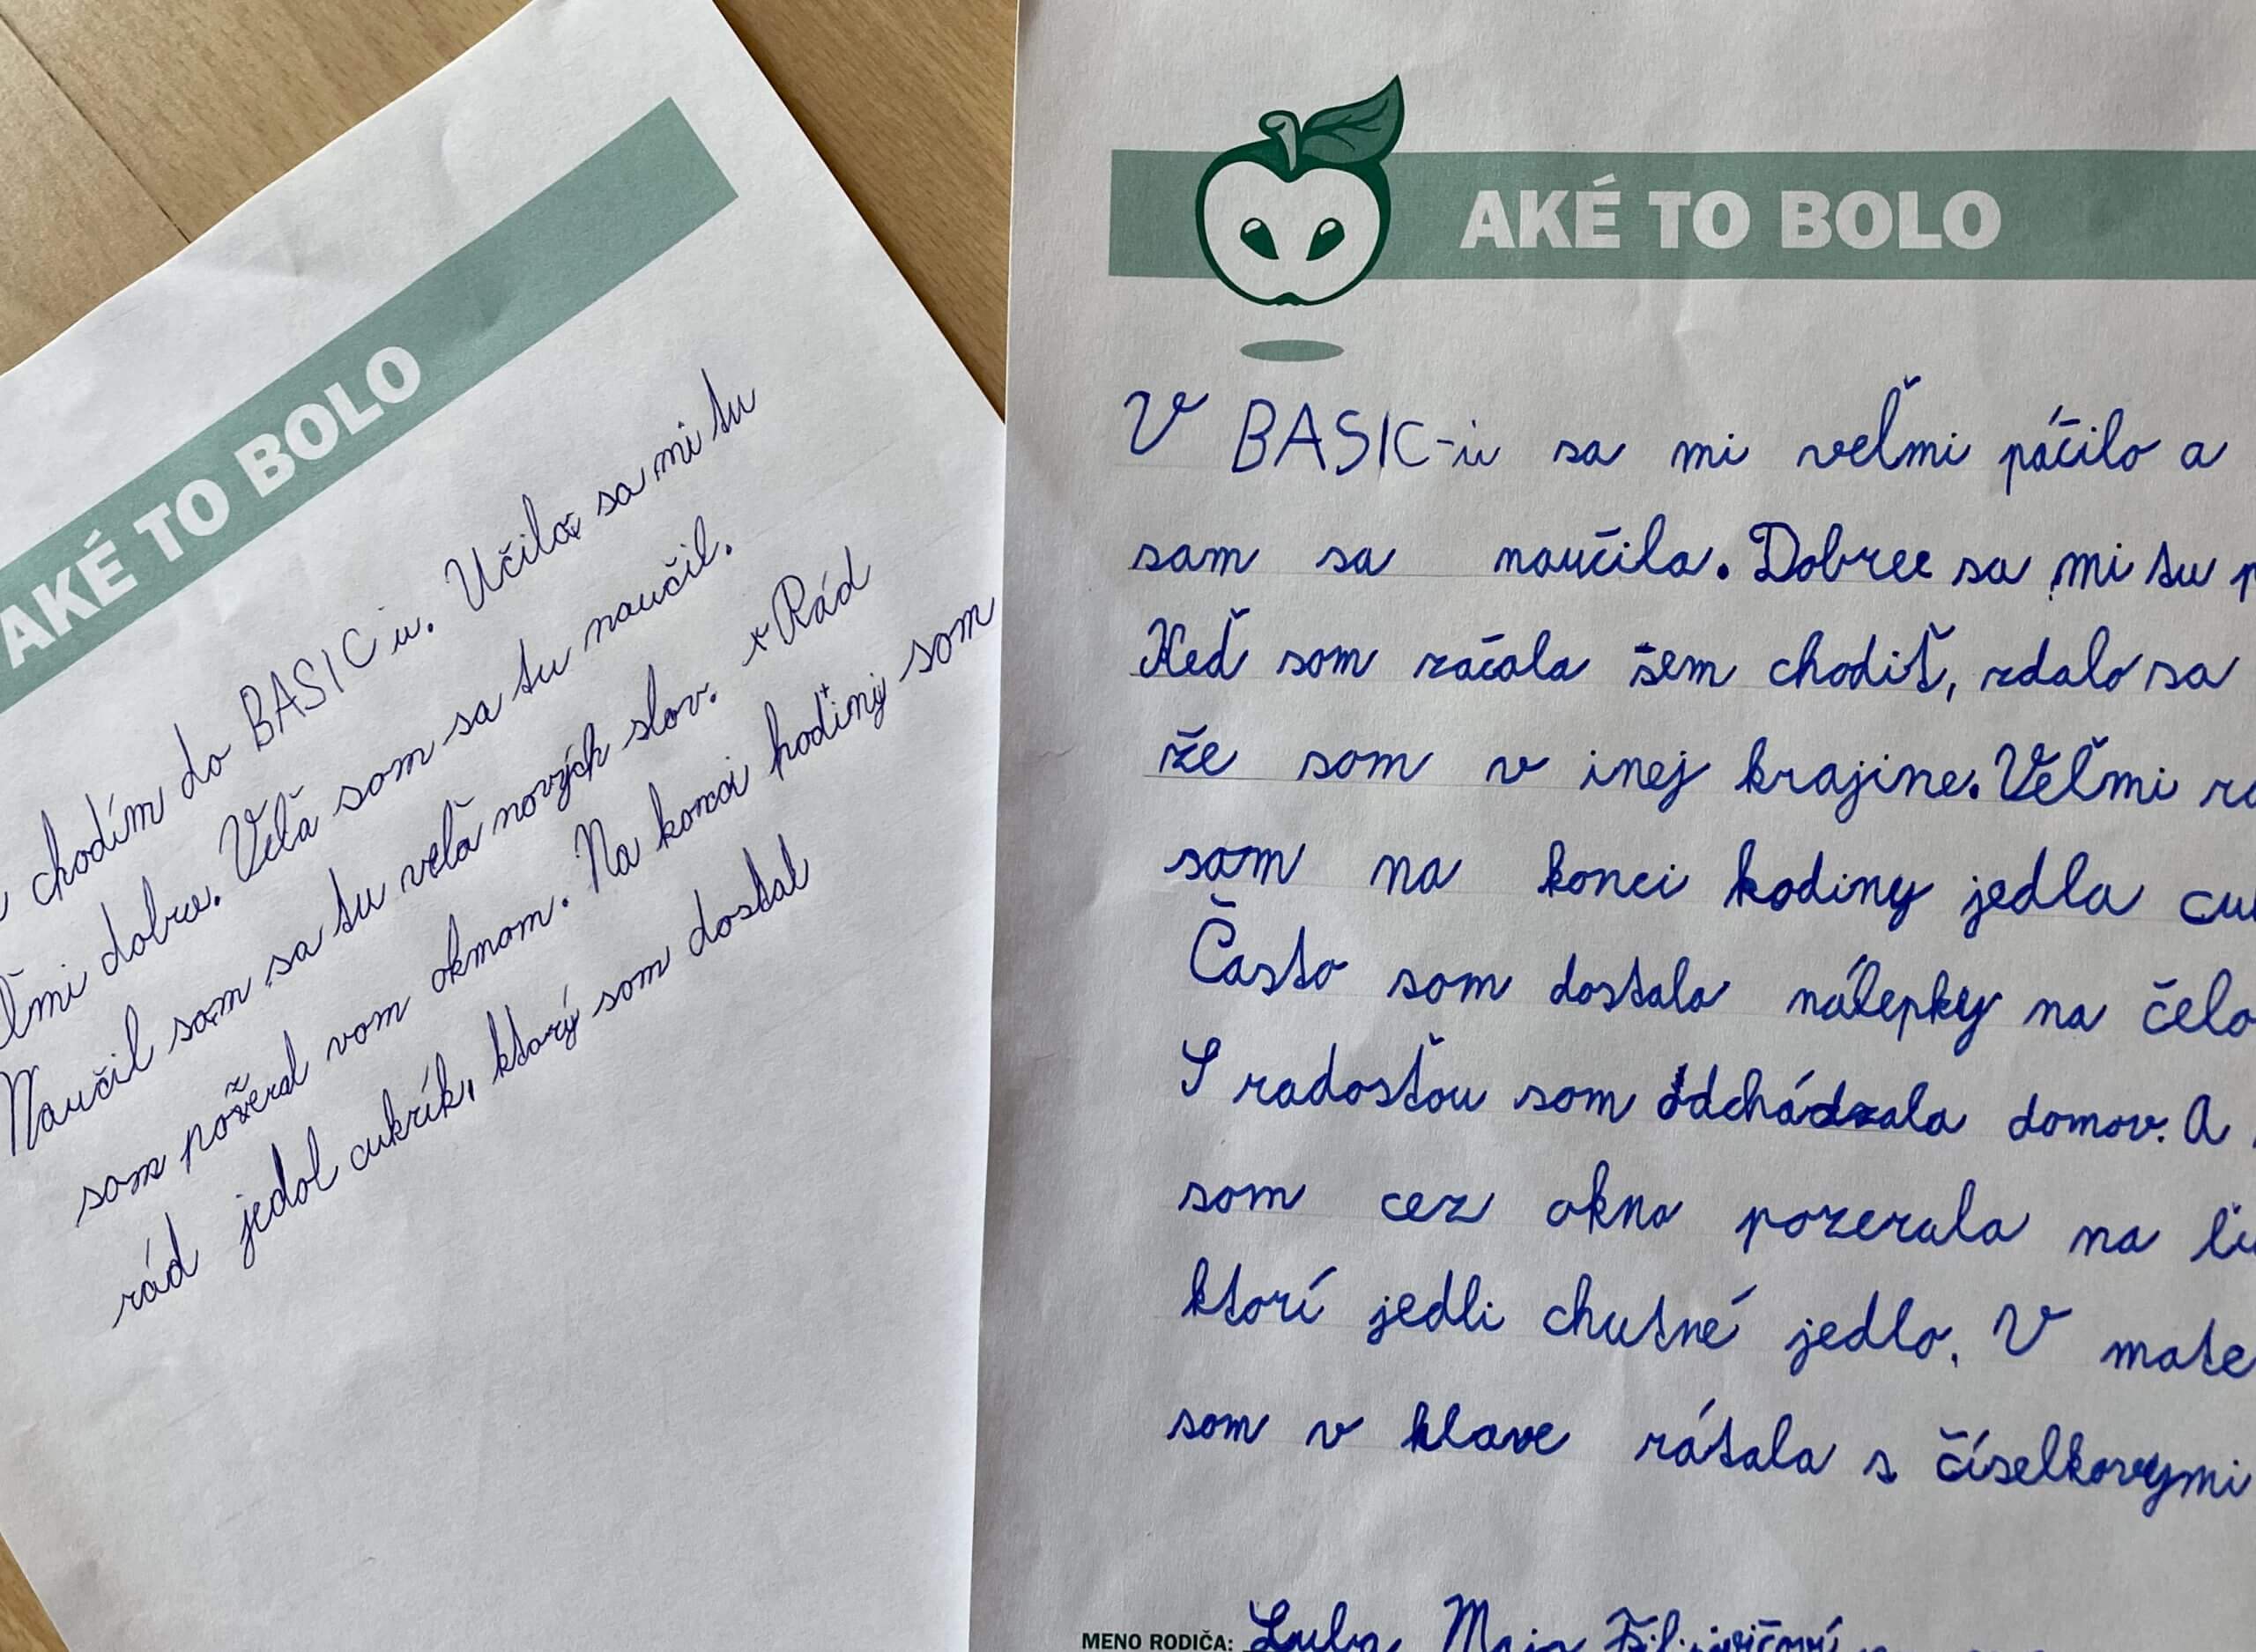 AKÉ TO BOLO
chodím do BASIC u. Učilo sa mi tu
dobre. Veľa som sa tu naučil.
Naučil som sa tu veľa nových slov. Rád
som požeral vom oknom. Na konci hodiny som
rád jedol cukrík, ktorý som dostal
AKÉ TO BOLO
V BASIC-u sa mi veľmi páčilo a
sam sa naučila. Dobree sa mi tu
Keď som začala sem chodiť, zdalo sa
že som v inej krajine. Veľmi
som na konci hodiny jedla
Často som dostala nálepky na čelo
S radosťou som odchádzala domov. A
som cez okno pozerala na
ktorí jedli chutné jedlo. V
som v hlave rátala s číselkovymi
MENO RODIČA: